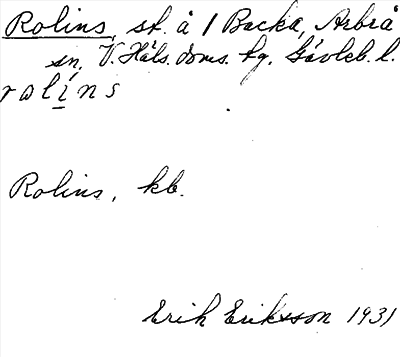 Rolins, st. å 1 Backa, Arbrå
sn. V. Häls. doms. tg. Gävleb. l.
rolins
Rolins, kb.
Erik Eriksson 1931